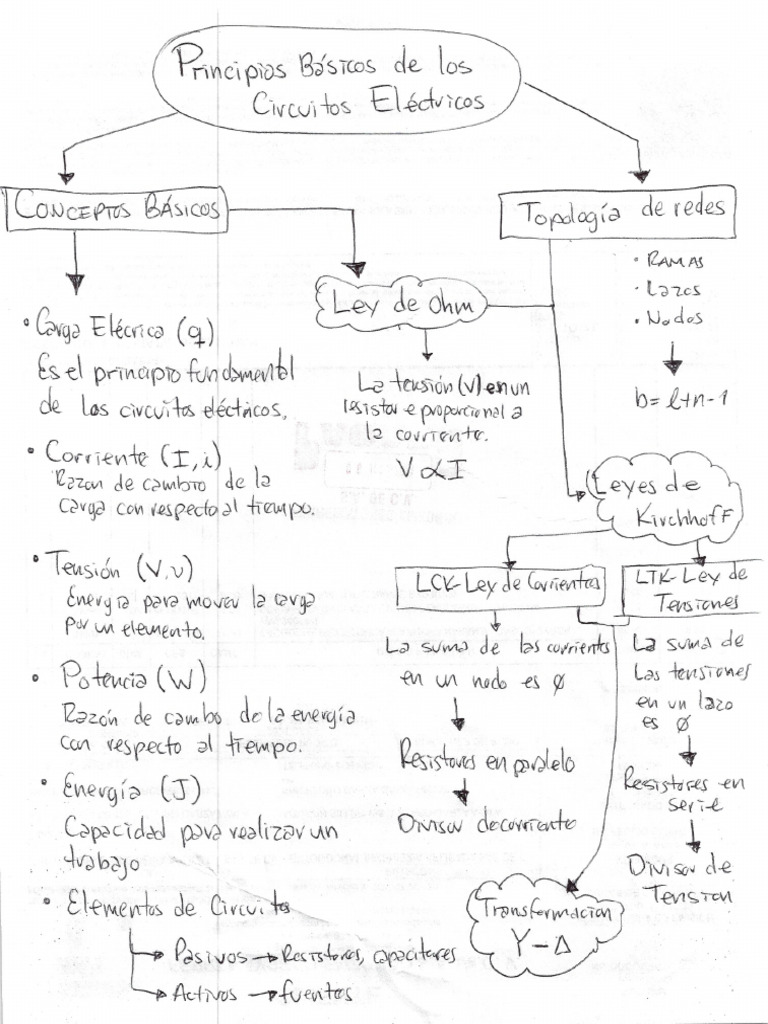 Principios Básicos de los
Circuitos Eléctricos
CONCEPTOS BÁSICOS
Topología de redes
• RAMAS
• Lazos
• Nodos
b= l+n-1
Ley de Ohm
La tensión (V) en un
resistor e proporcional a
la corriente.
V ∝ I
• Carga Elécrica (q)
Es el principio fundamental
de los circuitos eléctricos.
• Corriente (I, i)
Razón de cambio de la
carga con respecto al tiempo.
• Tensión (V, v)
Energía para mover la carga
por un elemento.
• Potencia (W)
Razón de cambo de la energía
con respecto al tiempo.
• Energía (J)
Capacidad para realizar un
trabajo
• Elementos de Circuito
Pasivos → Resistores, capacitores
Activos → fuentes
Leyes de
Kirchhoff
LCK-Ley de Corrientes
La suma de las corrientes
en un nodo es ∅
Resistores en paralelo
Divisor de corriente
LTK-Ley de
Tensiones
La suma de
las tensiones
en un lazo
es ∅
Resistores en
serie
Divisor de
Tension
Transformacion
Y-Δ